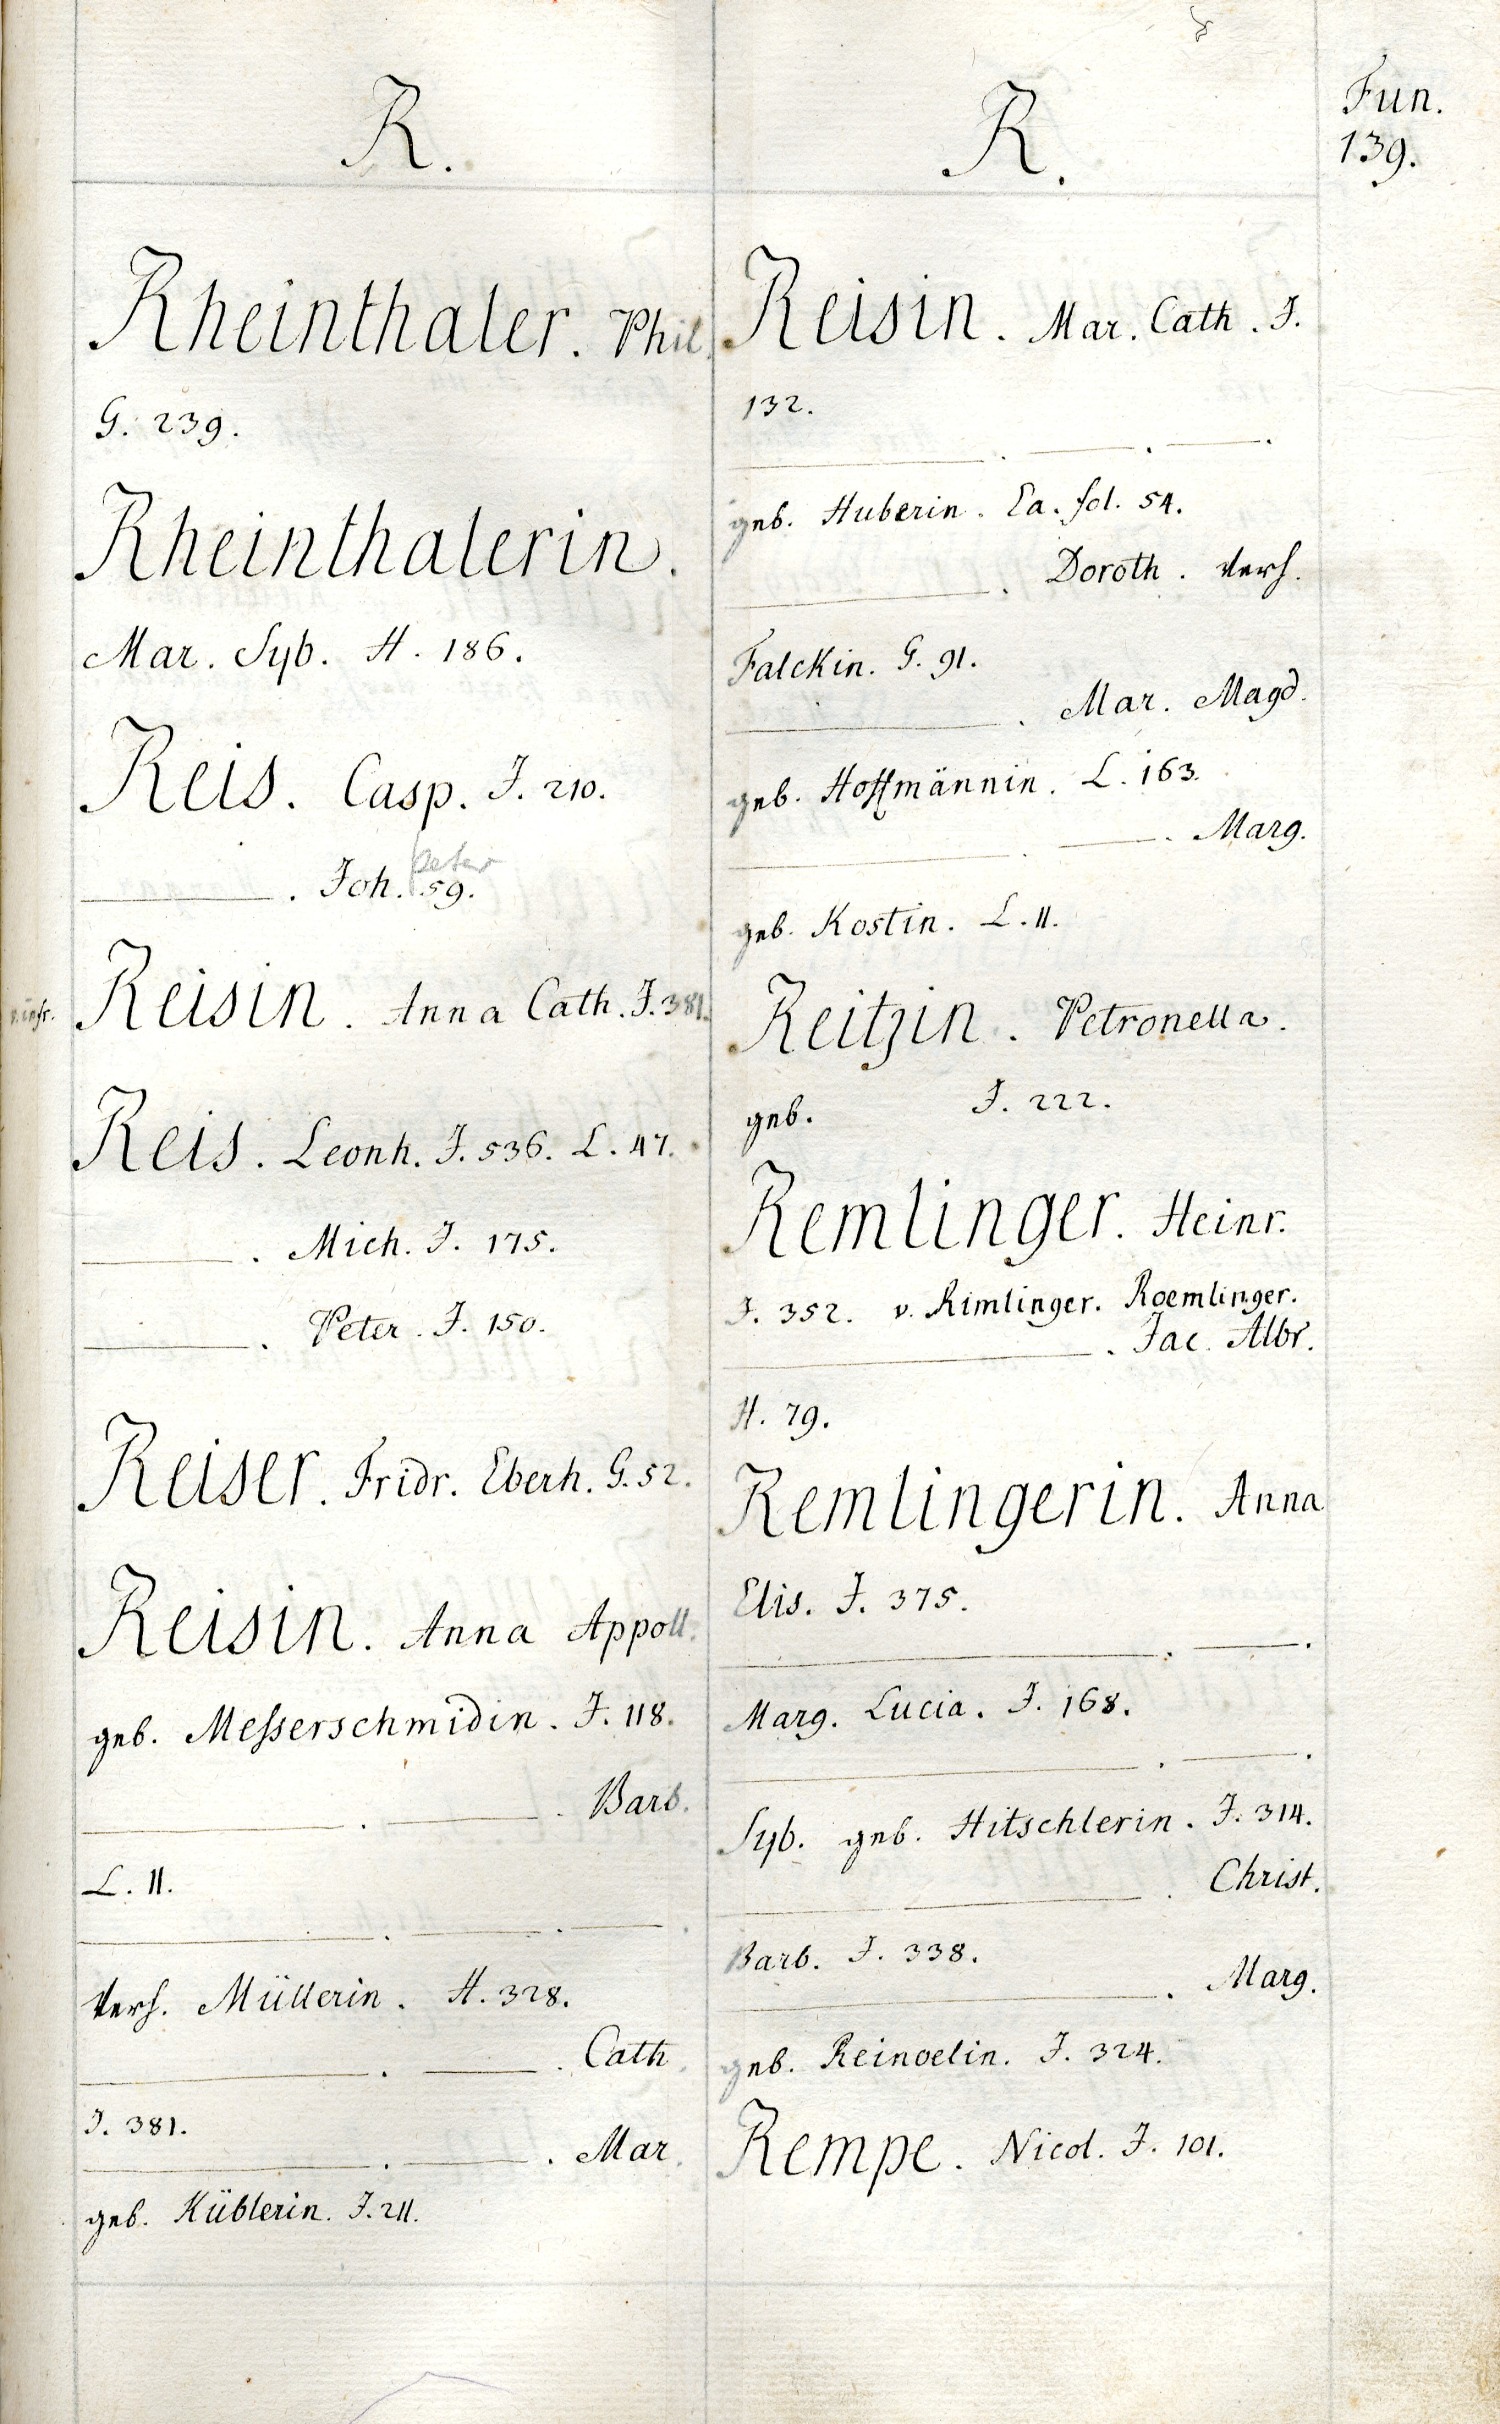 R.
Rheinthaler. Phil.
G. 239.
Rheinthalerin.
Mar. Syb. H. 186.
Reis. Casp. J. 210.
——. Joh. 59.
Peter
v. infr.
Reisin. Anna Cath. J. 381.
Reis. Leonh. J. 536. L. 47.
——. Mich. J. 175.
——. Peter. J. 150.
Reiser. Fridr. Eberh. G. 52.
Reisin. Anna Appoll.
geb. Messerschmidin. J. 118.
——. ——. Barb.
L. 11.
——. ——. ——.
verh. Müllerin. H. 328.
——. ——. Cath.
J. 381.
——. ——. Mar.
geb. Küblerin. J. 211.
R.
Reisin. Mar. Cath. J.
132.
——. ——. ——.
geb. Huberin. Ea. fol. 54.
——. Doroth. verh.
Falckin. G. 91.
——. Mar. Magd.
geb. Hoffmännin. L. 163.
——. ——. Marg.
geb. Kostin. L. 11.
Reitzin. Petronella.
geb. J. 222.
Remlinger. Heinr.
J. 352. v. Rimlinger. Roemlinger.
——. Jac. Albr.
H. 79.
Remlingerin. Anna
Elis. J. 375.
——. ——.
Marg. Lucia. J. 168.
——. ——.
Syb. geb. Hitschlerin. J. 314.
——. Christ.
Barb. J. 338.
——. Marg.
geb. Reinoelin. J. 324.
Rempe. Nicol. J. 101.
Fun.
139.